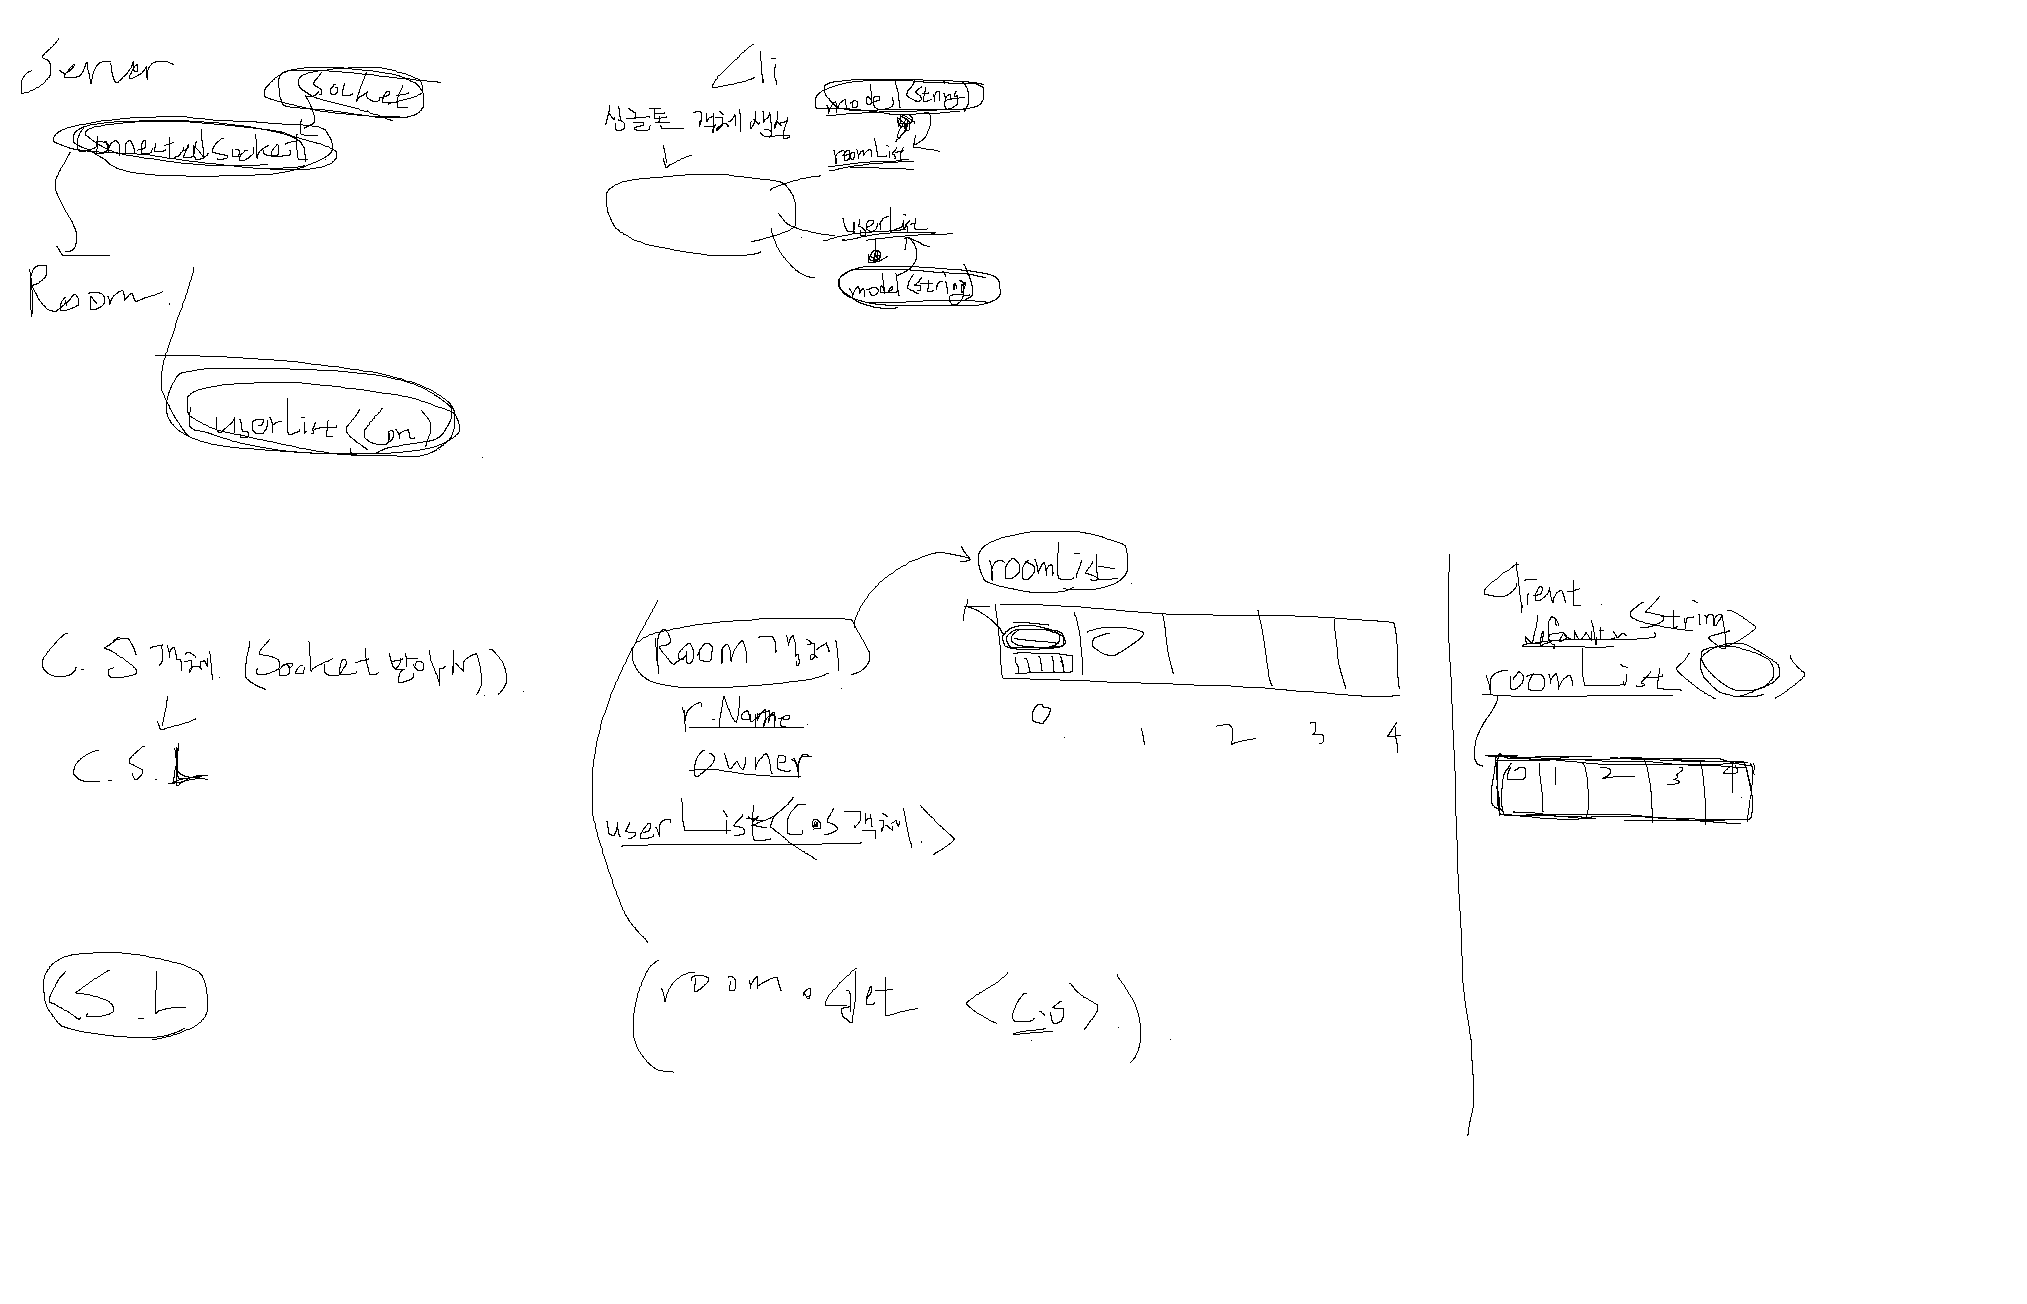 Server
Socket
ConnectedSocket
Room
userList<Con>
Cli
싱글톤 객체 생성
model<String>
roomList
userList
model<String>
C.S 객체 (Socket 받아서)
C.S.L
C.S.L
Room 객체
r.Name
owner
userList<C.S 객체>
(room.get <C.S>)
roomList
0 1 2 3 4
Client
<String>
roomList< >
0 1 2 3 4